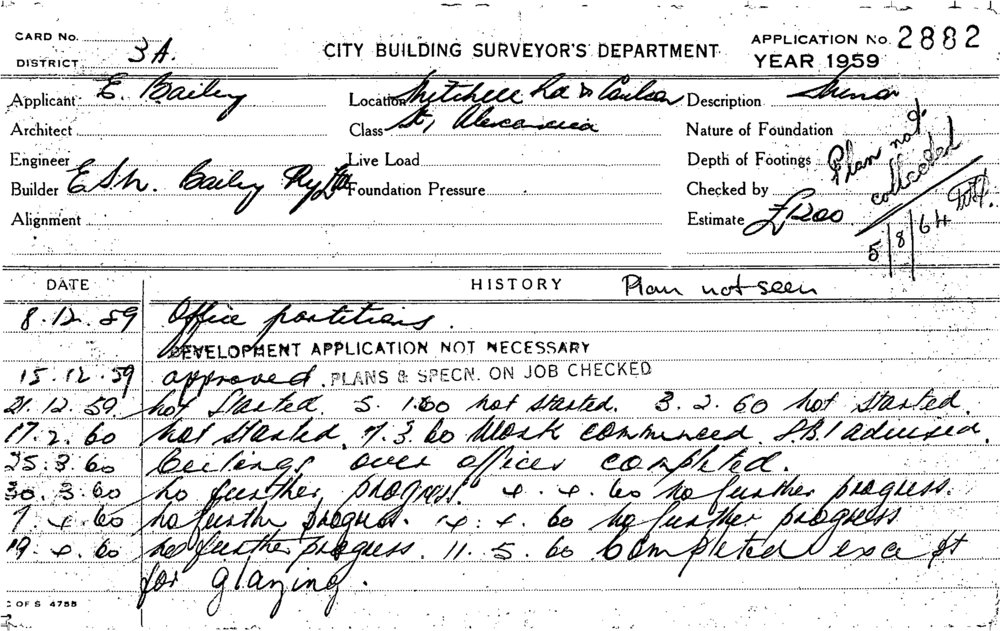 CARD No.
DISTRICT 3A.
CITY BUILDING SURVEYOR'S DEPARTMENT
APPLICATION No. 2882
YEAR 1959
Applicant E. Bailey
Location Mitchell Rd &
Description Minor
Architect
Class St, Alexandria
Nature of Foundation
Engineer
Live Load
Depth of Footings
Builder E.S.M. Bailey Pty Ltd
Foundation Pressure
Checked by
Alignment
Estimate £1200
Plan not collected
5/8/64
DATE HISTORY Plan not seen
8.12.59 Office partitions.
DEVELOPMENT APPLICATION NOT NECESSARY
15.12.59 approved. PLANS & SPECN. ON JOB CHECKED
21.12.59. not started. 5.1.60 not started. 3.2.60 not started.
17.2.60 not started. 7.3.60 Work commenced. S.B.I advised.
25.3.60 Ceilings over offices completed.
30.3.60 no further progress. 4.4.60 no further progress.
7.4.60 no further progress. 14.4.60 no further progress
19.4.60 no further progress. 11.5.60 Completed except
for glazing.
C OF S 4755